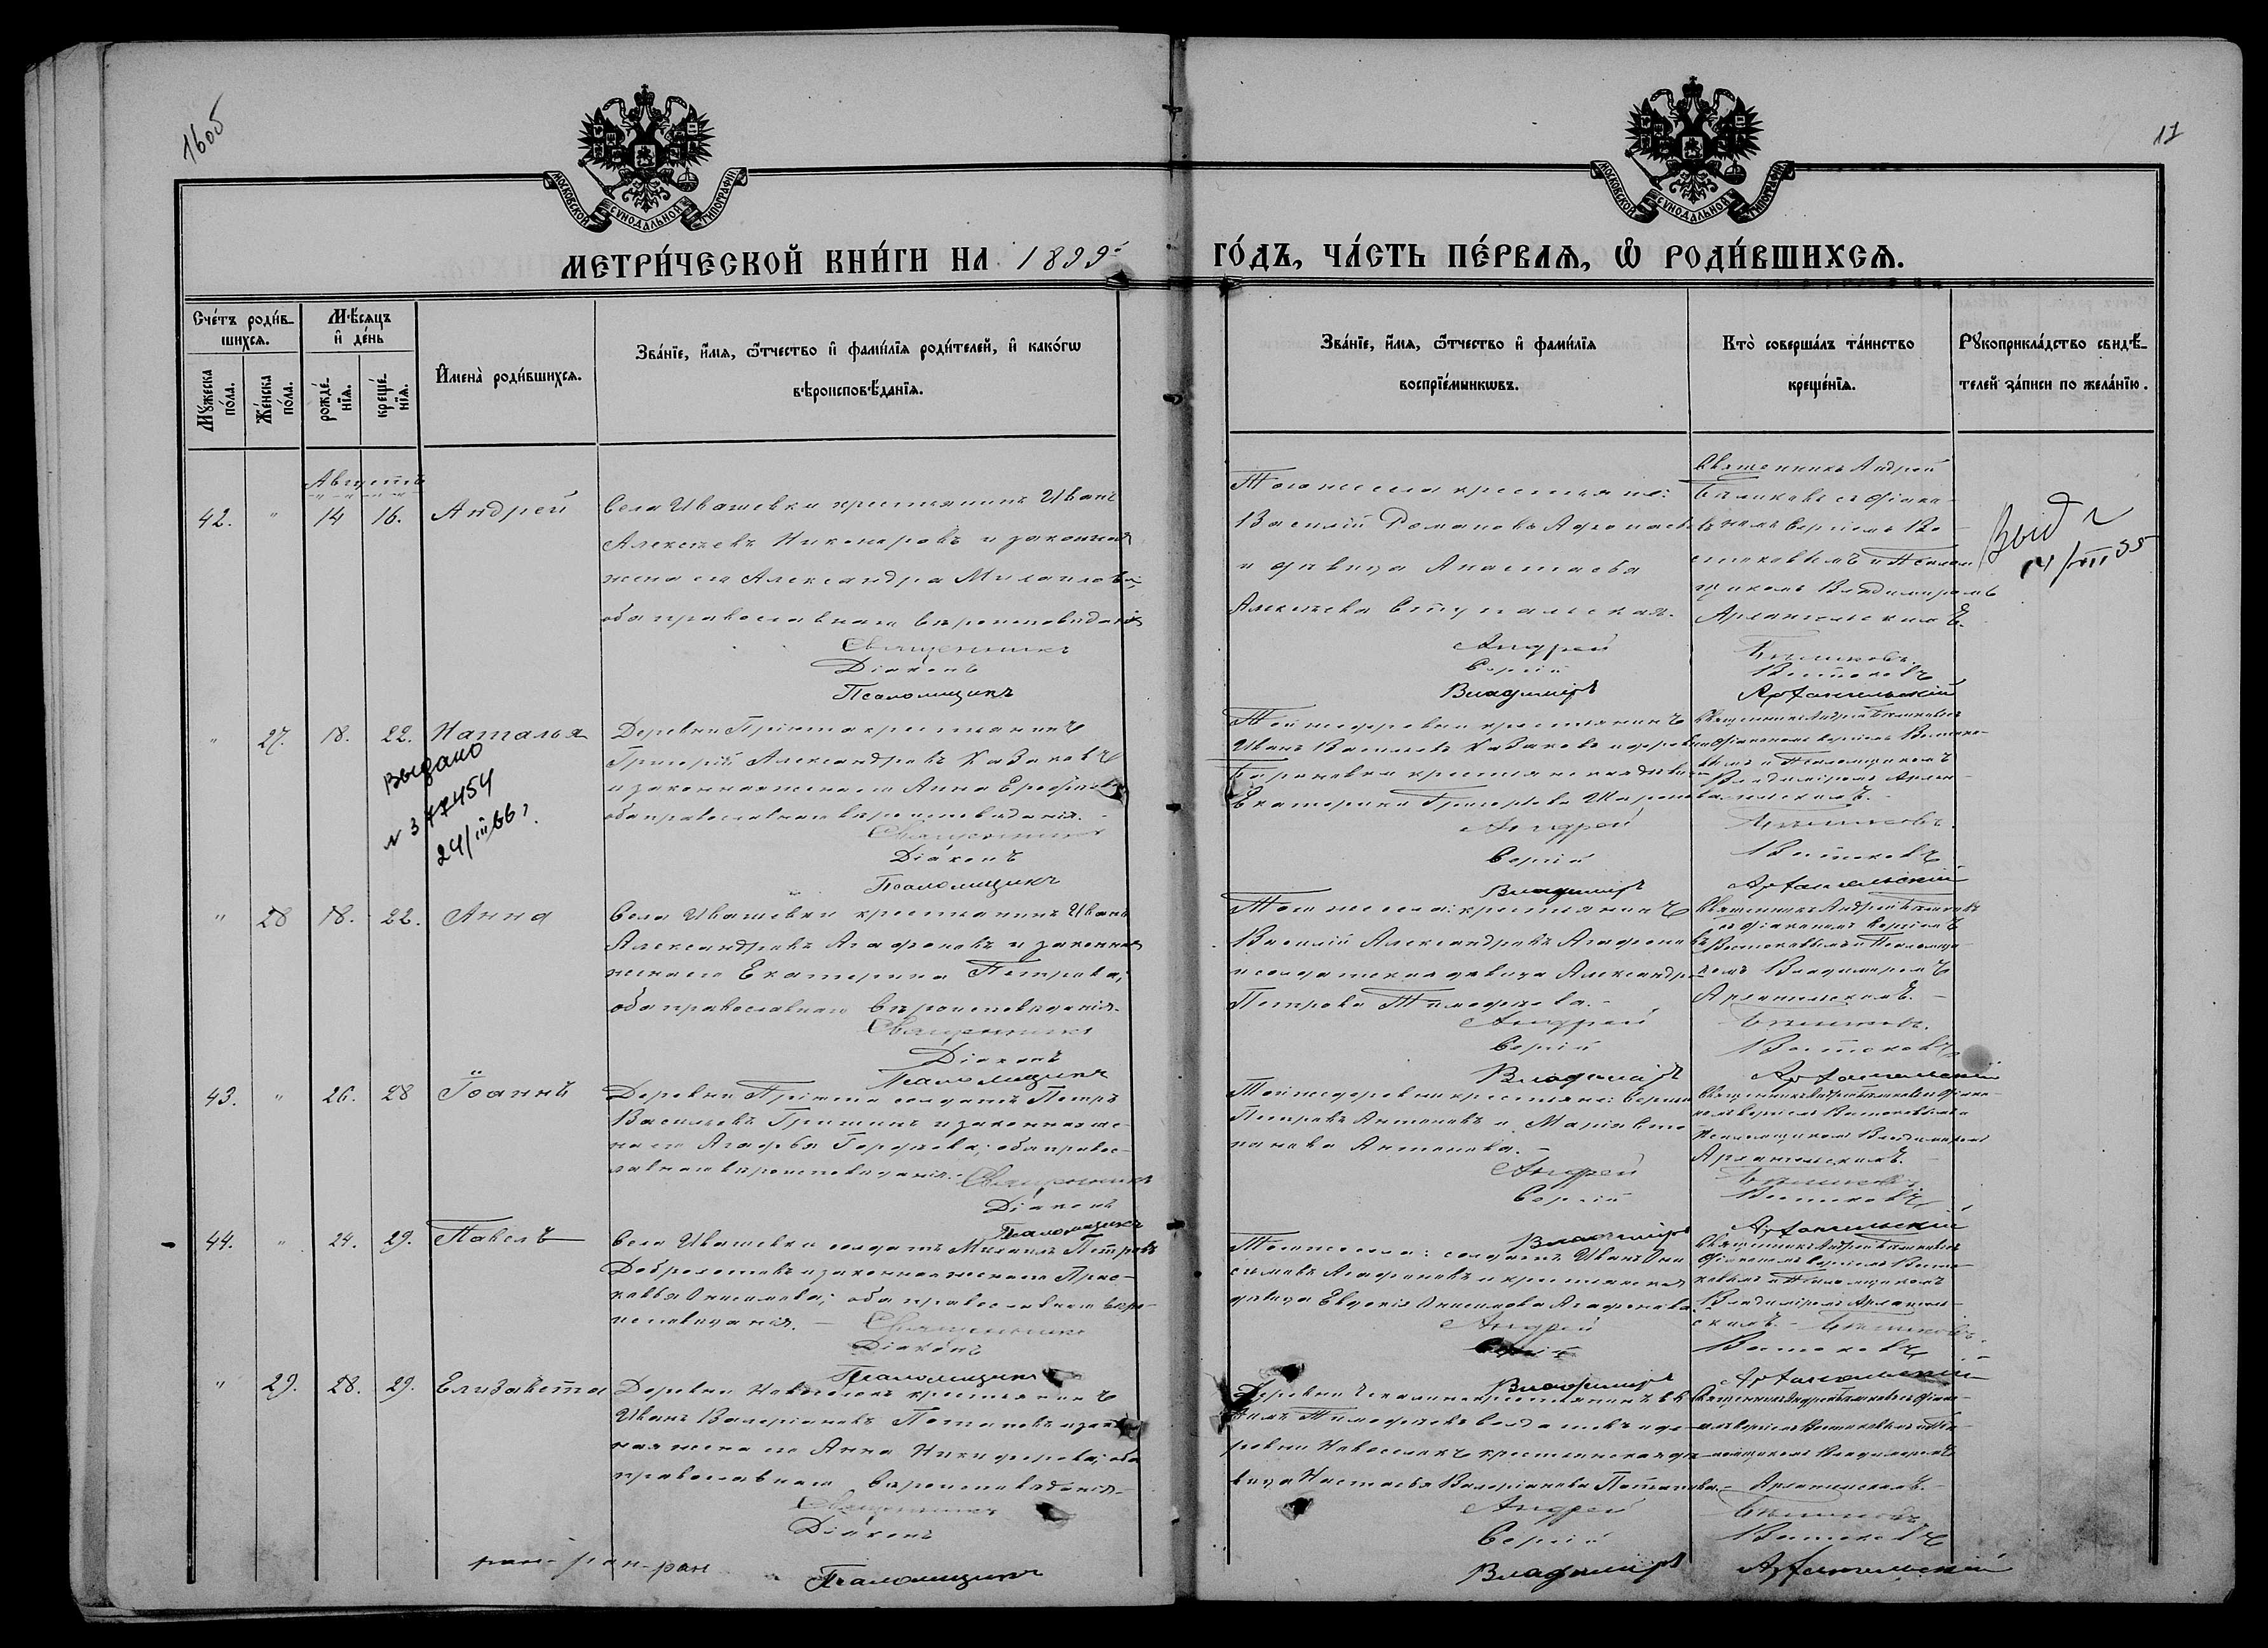 16об
17
МОСКОВСКОЙ СУНОДАЛЬНОЙ ТИПОГРАФІИ
МОСКОВСКОЙ СУНОДАЛЬНОЙ ТИПОГРАФІИ
МЕТРИ́ЧЕСКОЙ КНИ́ГИ НА 1899й
ГО́ДЪ, ЧА́СТЬ ПЕ́РВАѦ, Ѽ РОДИ́ВШИХСѦ.
Сче́тъ роди́в-
шихсѧ.
Мꙋжеска
по́ла.
Же́нска
по́ла.
Мѣ́сѧцъ
и҆ де́нь
рожде́-
нїѧ.
креще́-
нїѧ.
И҆мена̀ роди́вшихсѧ.
Зва́нїе, и҆́мѧ, ѻ҆́тчество и҆ фами́лїѧ роди́телей, и҆ како́гѡ
вѣроисповѣ́данїѧ.
Зва́нїе, и҆́мѧ, ѻ҆́тчество и҆ фами́лїѧ
воспрїе́мникѡвъ.
Кто̀ соверша́лъ та́инство
креще́нїѧ.
Рꙋкоприкла́дство свидѣ́-
телей за́писи по жела́нїю.
Августъ
42. " 14 16. Андрей
Села Ивашевки крестьянинъ Иванъ
Алексѣевъ Никоноровъ и законная
жена его Александра Михаилова;
оба православнаго вѣроисповѣданія
Священникъ
Діаконъ
Псаломщикъ
Того же села крестьяне:
Василій Романовъ
и дѣвица Анастасія
Алексѣева
Андрей
Сергій
Владиміръ
Священникъ Андрей
Бѣликовъ съ діако-
номъ Сергіемъ Во-
стоковымъ и Псалом-
щикомъ Владиміромъ
Архангельскимъ.
Бѣликовъ.
Востоковъ
Архангельскій
" 27. 18. 22. Наталья
Выдано
N 377454
24/III 66 г.
Деревни крестьянинъ
Григорій Александровъ Казаковъ
и законная жена его Анна
оба православнаго вѣроисповѣданія.
Священникъ
Діаконъ
Псаломщикъ
Той же деревни крестьянинъ
Иванъ Васильевъ Казаковъ и деревни
крестьянская дѣвица
Екатерина Григорьева
Андрей
Сергій
Владиміръ
Священникъ Андрей Бѣликовъ съ
діакономъ Сергіемъ Востоко-
вымъ и Псаломщикомъ
Владиміромъ Архан-
гельскимъ.
Бѣликовъ.
Востоковъ
Архангельскій
" 28 18. 22. Анна
Села Ивашевки крестьянинъ Иванъ
Александровъ Агафоновъ и законная
жена его Екатерина Петрова;
оба православнаго вѣроисповѣданія.
Священникъ
Діаконъ
Псаломщикъ
Того же села: крестьянинъ
Василій Александровъ Агафоновъ
и солдатская дѣвица Александра
Петрова Тимофѣева.
Андрей
Сергій
Владиміръ
Священникъ Андрей Бѣликовъ
съ діакономъ Сергіемъ
Востоковымъ и Псаломщи-
комъ Владиміромъ
Архангельскимъ.
Бѣликовъ.
Востоковъ
Архангельскій
43. " 26. 28 Іоаннъ
Деревни солдатъ Петръ
Васильевъ Гришинъ и законная же-
на его Агафья оба правос-
лавнаго вѣроисповѣданія. Священникъ
Діаконъ
Псаломщикъ
Той же деревни крестьяне: Сергій
Петровъ Антоновъ и Марія Сте-
панова Антонова.
Андрей
Сергій
Владиміръ
Священникъ Андрей Бѣликовъ съ діако-
номъ Сергіемъ Востоковымъ и
Псаломщикомъ Владиміромъ
Архангельскимъ.
Бѣликовъ
Востоковъ
Архангельскій
44. " 24. 29. Павелъ
Села Ивашевки солдатъ Михаилъ Петровъ
и законная жена его Прас-
ковья Онисимова; оба православнаго вѣро-
исповѣданія. Священникъ
Діаконъ
Псаломщикъ
Того же села: солдатъ Иванъ Они-
симовъ Агафоновъ и крестьянская
дѣвица Евдокія Онисимова Агафонова.
Андрей
Сергій
Владиміръ
Священникъ Андрей Бѣликовъ съ
діакономъ Сергіемъ Восто-
ковымъ и Псаломщикомъ
Владиміромъ Архангель-
скимъ. Бѣликовъ.
Востоковъ
Архангельскій
" 29. 28. 29. Елизавета
Деревни Новоселокъ крестьянинъ
Иванъ Валеріановъ Потаповъ и закон-
ная жена его Анна Никифорова; оба
православнаго вѣроисповѣданія.
Священникъ
Діаконъ
Псаломщикъ
Деревни крестьянинъ
Тимофѣевъ и де-
ревни Новоселокъ крестьянская дѣ-
вица Настасья Валеріанова Потапова.
Андрей
Сергій
Владиміръ
Священникъ Андрей Бѣликовъ съ діако-
номъ Сергіемъ Востоковымъ и Пса-
ломщикомъ Владиміромъ
Архангельскимъ.
Бѣликовъ
Востоковъ
Архангельскій